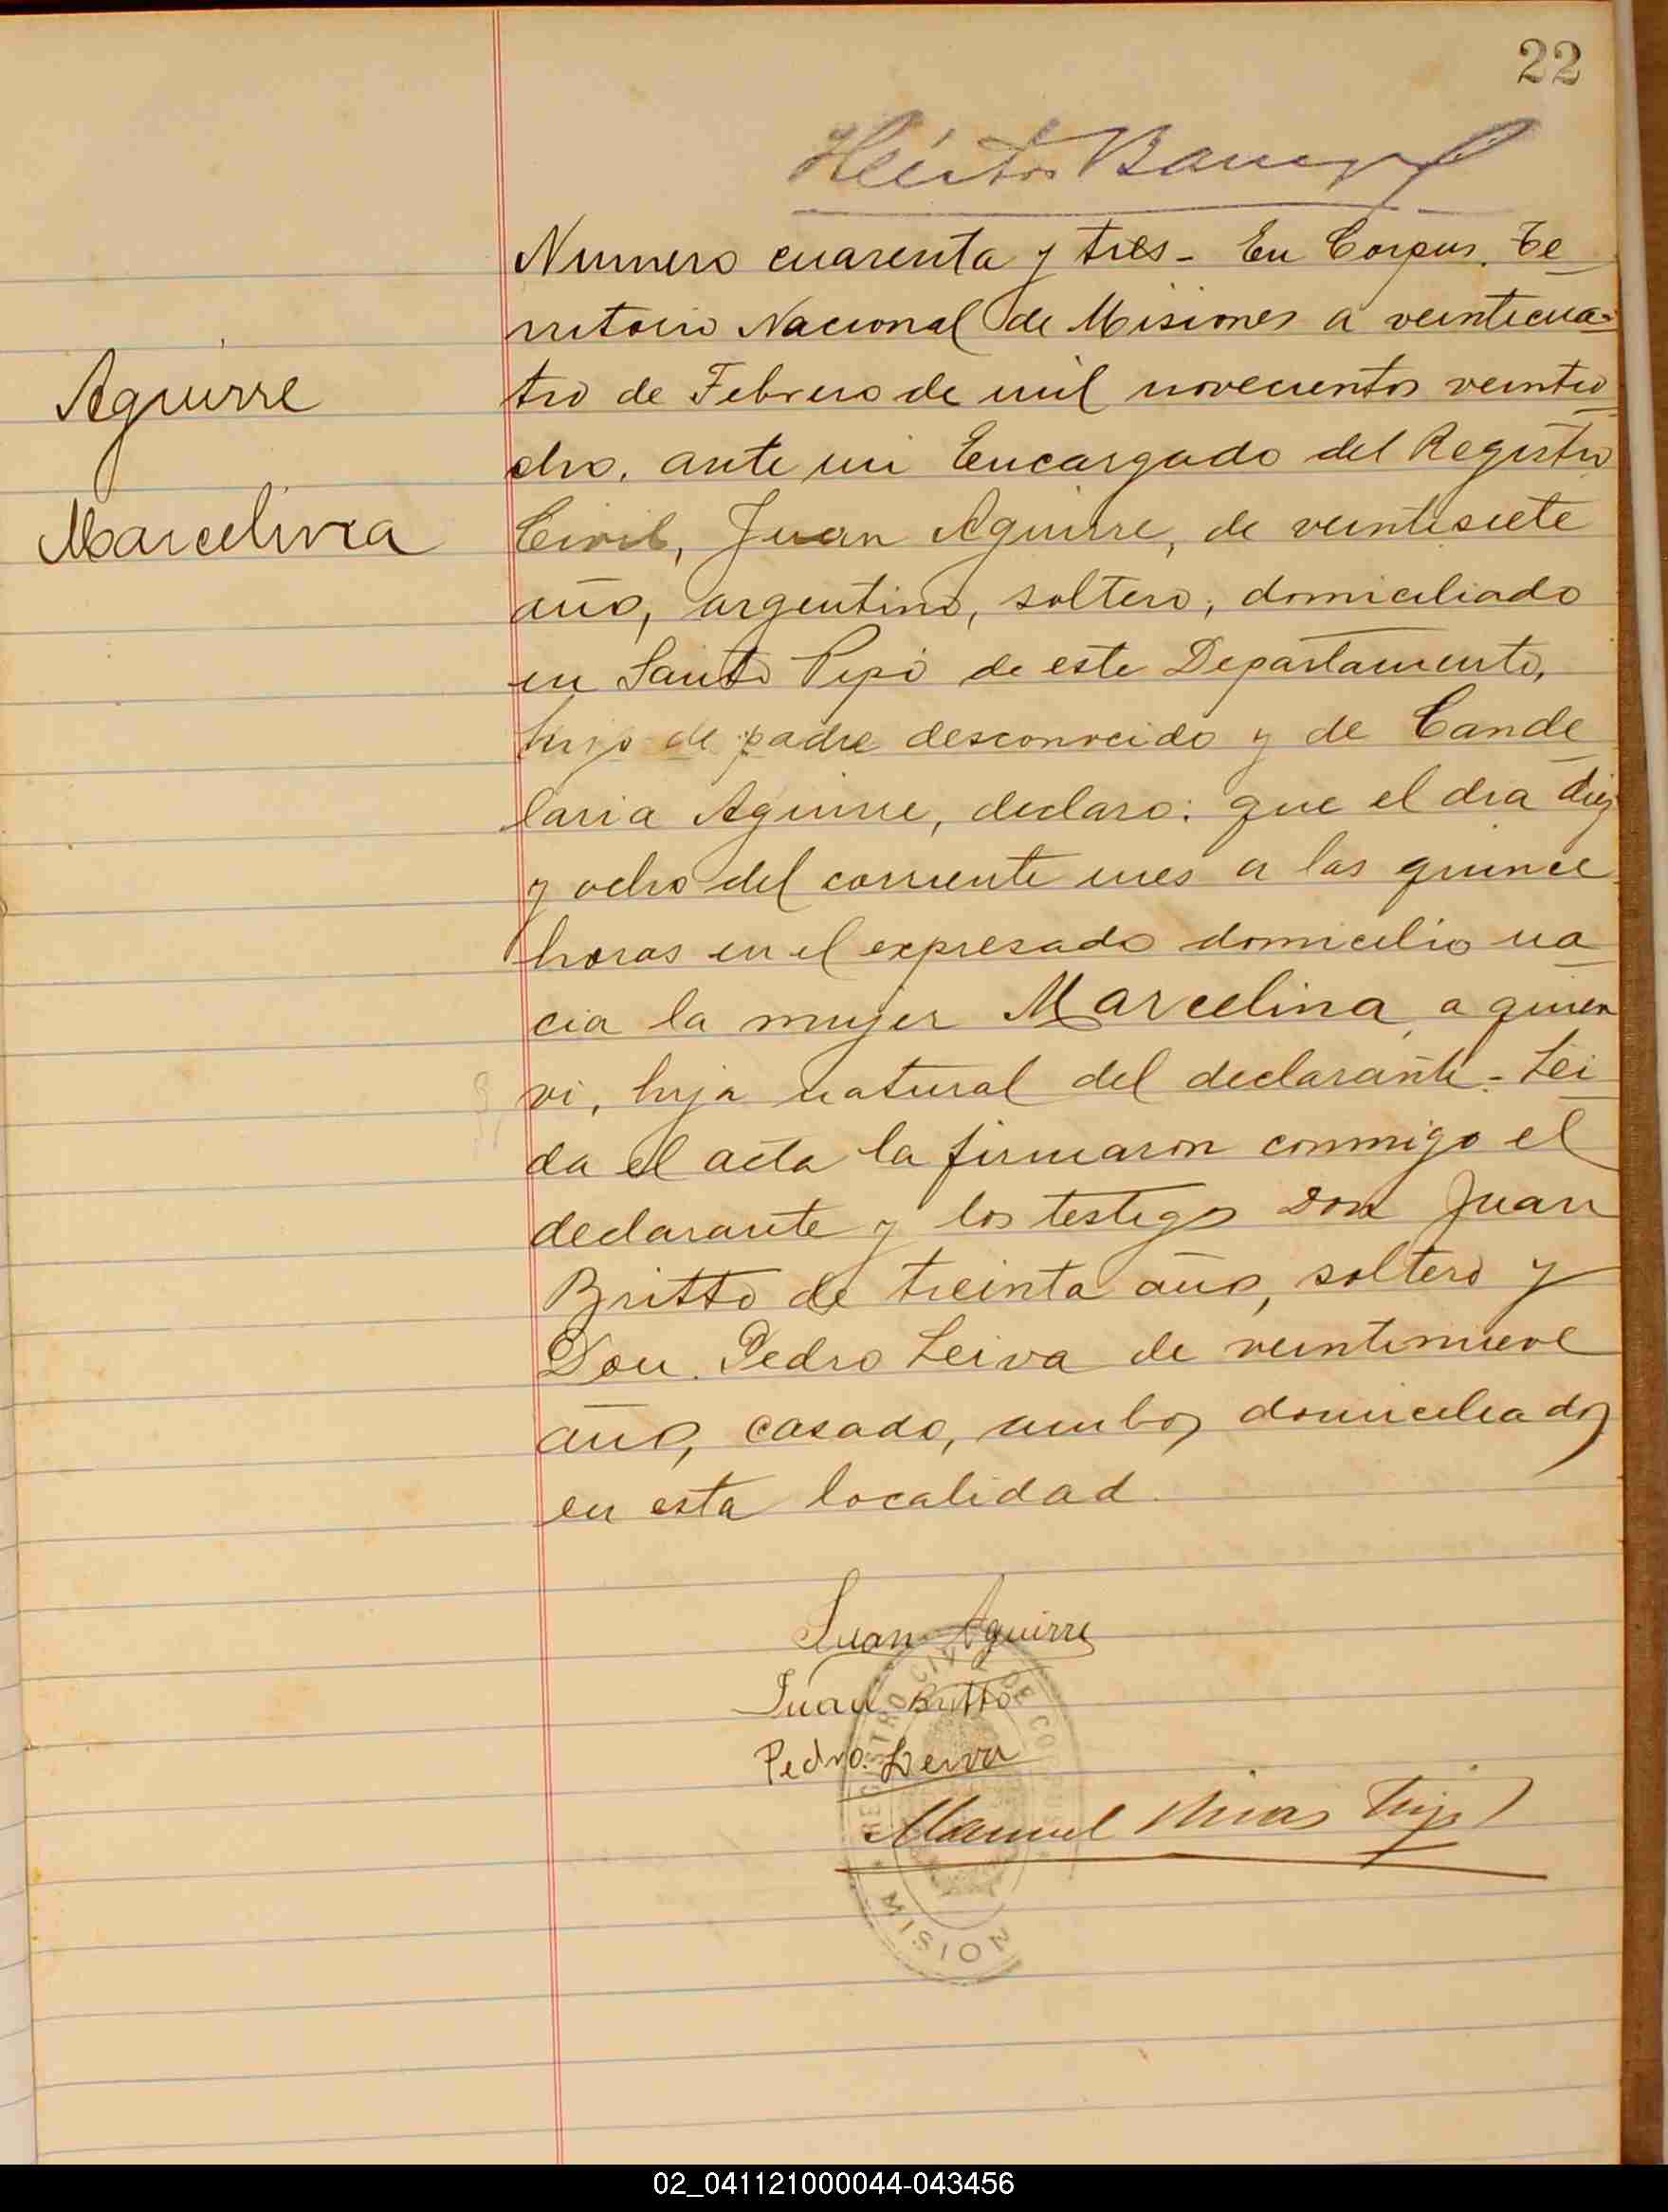 22
Héctor
Numero cuarenta y tres - En Corpus, Te
rritorio Nacional de Misiones a veinticua-
tro de Febrero de mil novecientos veintio
cho, ante mi Encargado del Registro
Aguirre
Marcelina
Civil, Juan Aguirre, de veintisiete
años, argentino, soltero, domiciliado
en Santo Pipó de este Departamento,
hijo de padre desconocido y de Cande
laria Aguirre, declaro: que el dia diez
y ocho del corriente mes a las quince
horas en el expresado domicilio na
cia la mujer Marcelina, a quien
vi, hija natural del declarante - Lei
da el acta la firmaron conmigo el
declarante y los testigos Don Juan
Britto de treinta años, soltero y
Don Pedro Leiva de veintinueve
años, casado, ambos domiciliados
en esta localidad.
Juan Aguirre
Juan Britto
Pedro Leiva
Manuel
REGISTRO CIVIL DE CORPUS
MISION
02_041121000044-043456